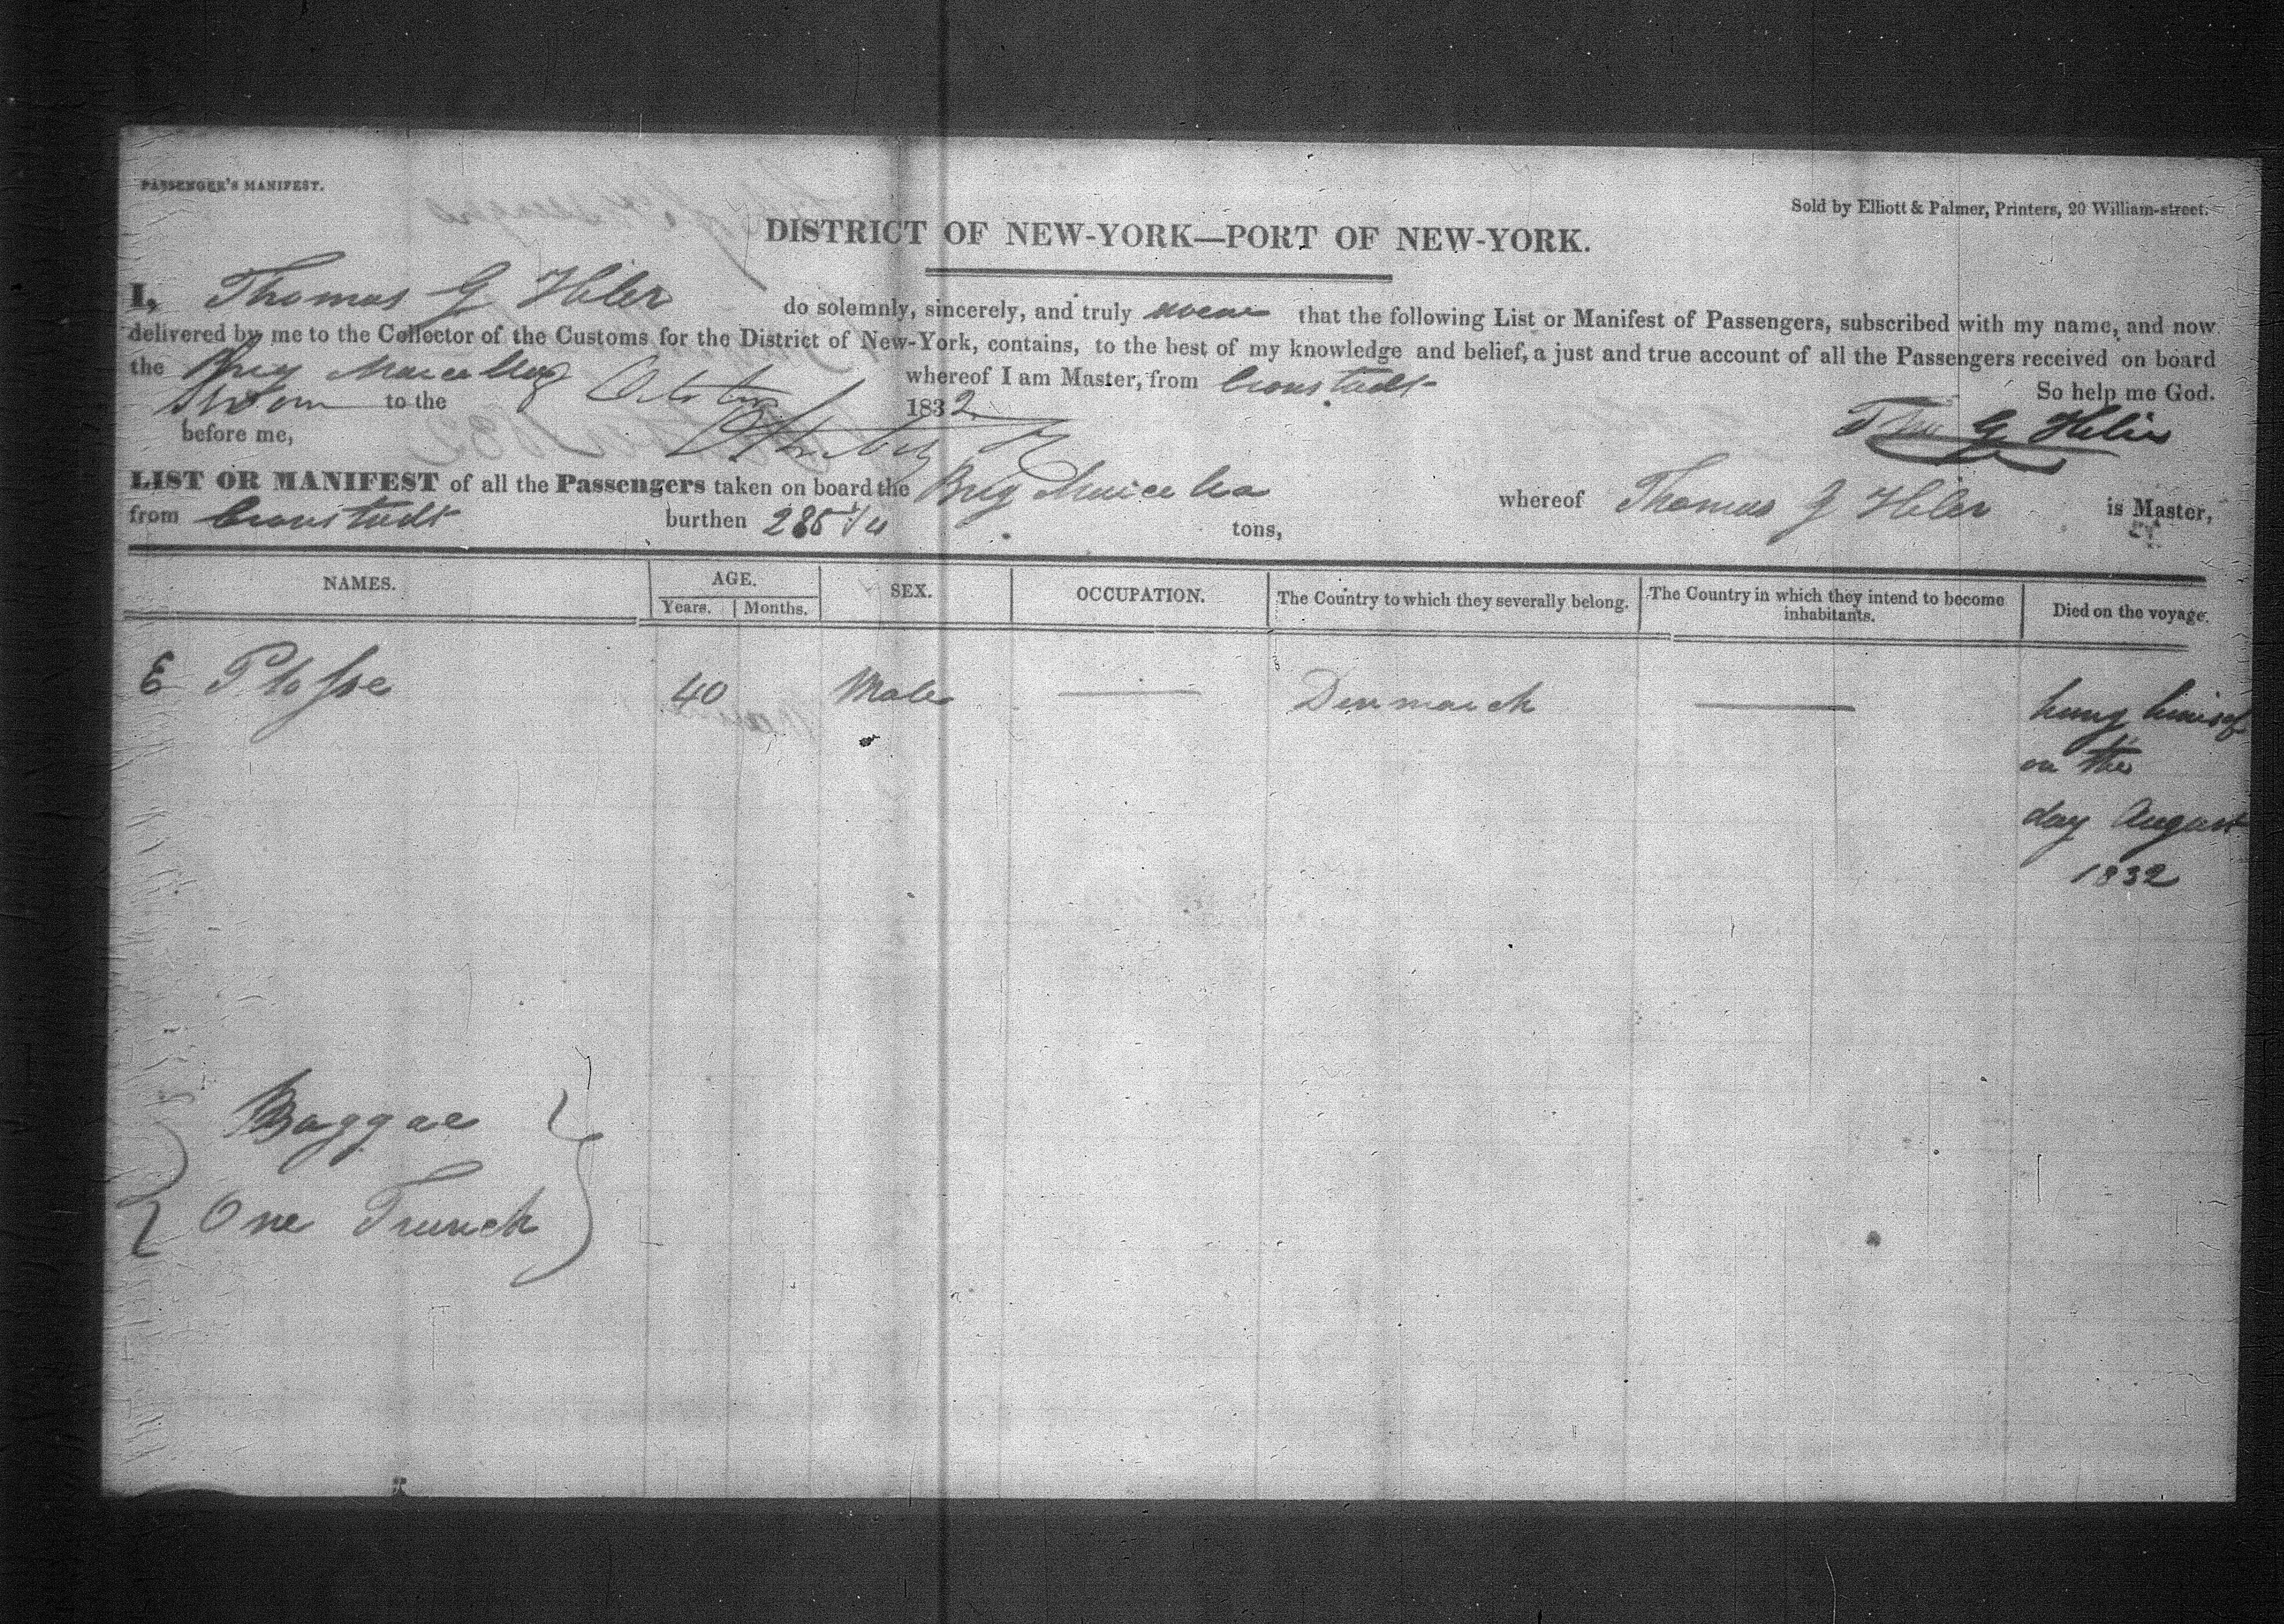 PASSENGER'S MANIFEST.
Sold by Elliott & Palmer, Printers, 20 William-street.
DISTRICT OF NEW-YORK—PORT OF NEW-YORK.
I, Thomas G Hiler do solemnly, sincerely, and truly swear that the following List or Manifest of Passengers, subscribed with my name, and now
delivered by me to the Collector of the Customs for the District of New-York, contains, to the best of my knowledge and belief, a just and true account of all the Passengers received on board
the Brig whereof I am Master, from Cronstadt So help me God.
Sworn to the October 1832
before me, Thos G Hiler
LIST OR MANIFEST of all the Passengers taken on board the Brig whereof Thomas G Hiler is Master,
from Cronstadt burthen tons,
NAMES. AGE. SEX. OCCUPATION. The Country to which they severally belong. The Country in which they intend to become inhabitants. Died on the voyage.
Years. Months.
E Plosse 40 Male — Denmarck — hung himsef
on the
day August
1832
Baggae
One Trunck